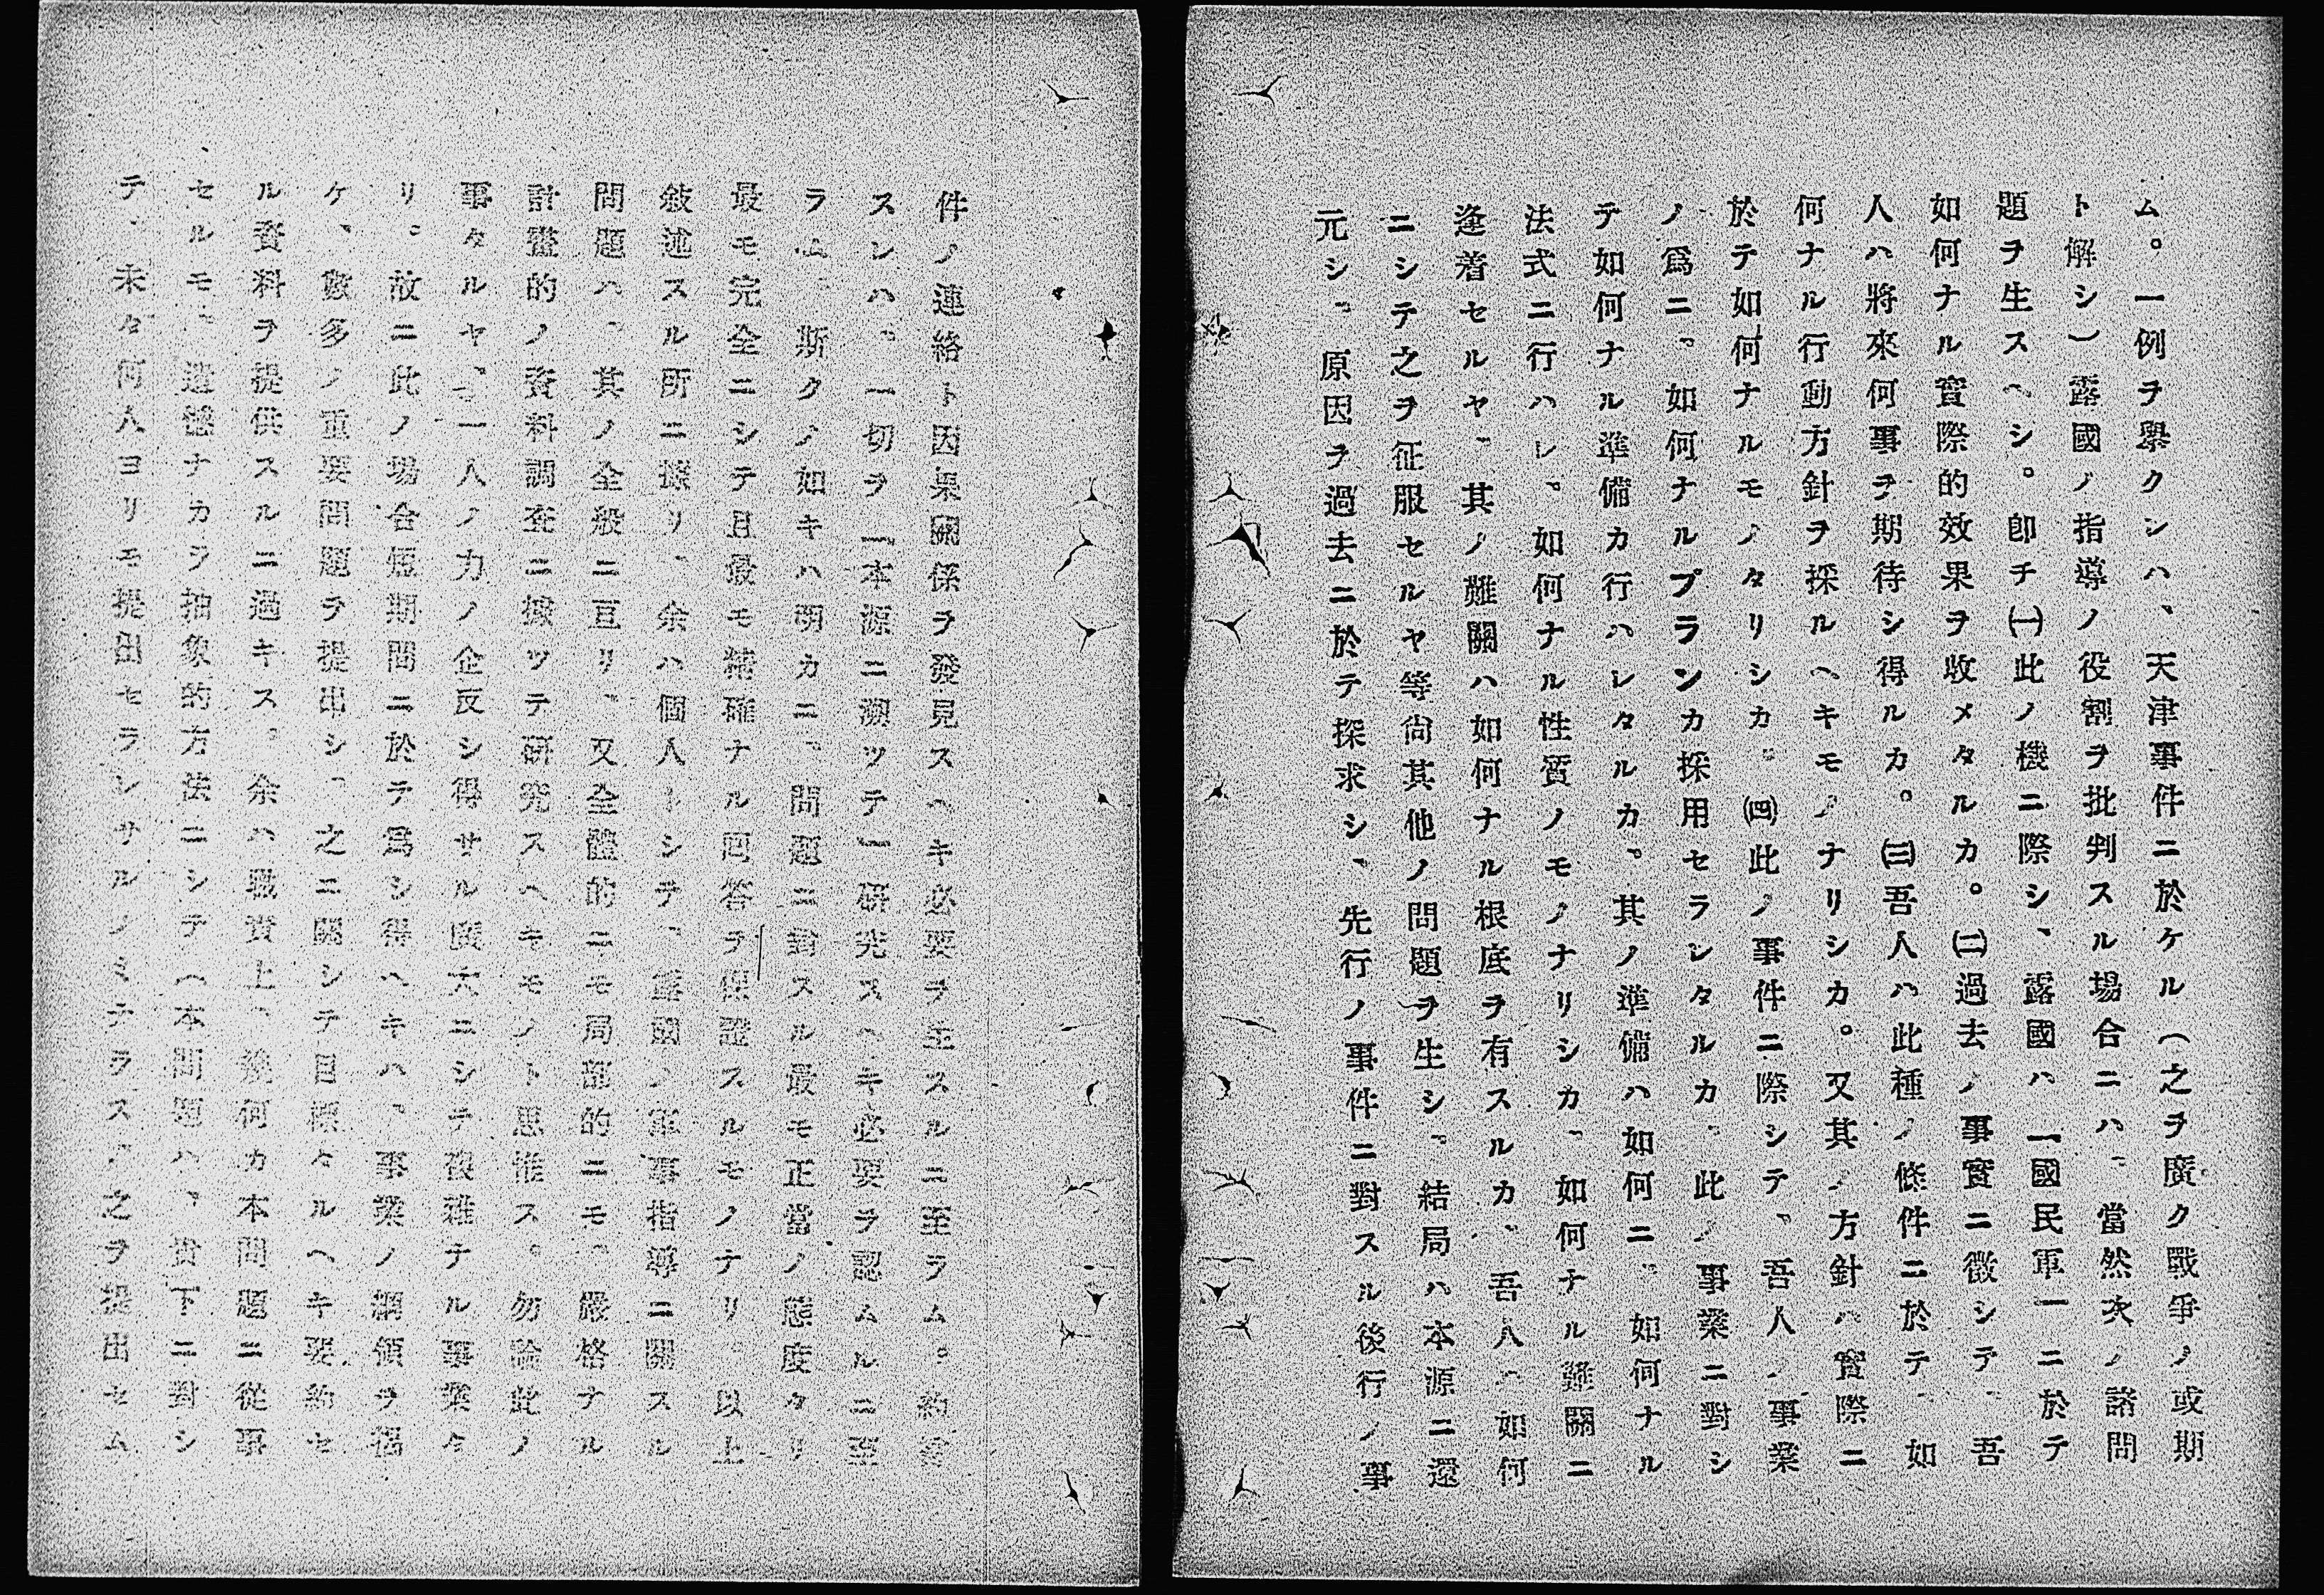 ム。一例ヲ擧クンハ、天津事件ニ於ケル(之ヲ廣ク戰爭ノ或期
ト解シ)露國ノ指導ノ役割ヲ批判スル場合ニハ、當然次ノ諸問
題ヲ生スヘシ。卽チ㈠此ノ機ニ際シ、露國ハ「國民軍」ニ於テ
如何ナル實際的效果ヲ收メタルカ。㈡過去ノ事實ニ徴シテ、吾
人ハ將來何事ヲ期待シ得ルカ。㈢吾人ハ此種ノ條件ニ於テ、如
何ナル行動方針ヲ採ルヘキモノナリシカ。又其ノ方針ハ實際ニ
於テ如何ナルモノタリシカ。㈣此ノ事件ニ際シテ、吾人ノ事業
ノ爲ニ、如何ナルプランカ採用セラレタルカ、此ノ事業ニ對シ
テ如何ナル準備カ行ハレタルカ。其ノ準備ハ如何ニ、如何ナル
法式ニ行ハレ、如何ナル性質ノモノナリシカ、如何ナル難關ニ
逢着セルヤ、其ノ難關ハ如何ナル根底ヲ有スルカ、吾人ハ如何
ニシテ之ヲ征服セルヤ等尙其他ノ問題ヲ生シ、結局ハ本源ニ還
元シ、原因ヲ過去ニ於テ探求シ、先行ノ事件ニ對スル後行ノ事
件ノ連絡ト因果關係ヲ發見スヘキ必要ヲ生スルニ至ラム。約言
スレハ、一切ヲ「本源ニ溯ツテ」硏究スヘキ必要ヲ認ムルニ至
ラム、斯クノ如キハ明カニ、問題ニ對スル最モ正當ノ態度タリ
最モ完全ニシテ且最モ精確ナル囘答ヲ保證スルモノナリ。以上
敍述スル所ニ據リ、余ハ個人トシテ、露國ノ軍事指導ニ關スル
問題ハ、其ノ全般ニ亘リ、又全體的ニモ局部的ニモ、嚴格ナル
計畫的ノ資料調査ニ據ツテ硏究スヘキモノト思惟ス。勿論此ノ
事タルヤ、一人ノ力ノ企及シ得サル廣大ニシテ複雜ナル事業タ
リ。故ニ此ノ場合短期間ニ於テ爲シ得ヘキハ、事業ノ綱領ヲ揭
ケ、數多ノ重要問題ヲ提出シ、之ニ關シテ目標タルヘキ要約セ
ル資料ヲ提供スルニ過キス。余ハ職責上、幾何カ本問題ニ從事
セルモ、遺憾ナカラ抽象的方法ニシテ(本問題ハ、貴下ニ對シ
テ、未タ何人ヨリモ提出セラレサルノミナラス)之ヲ提出セム